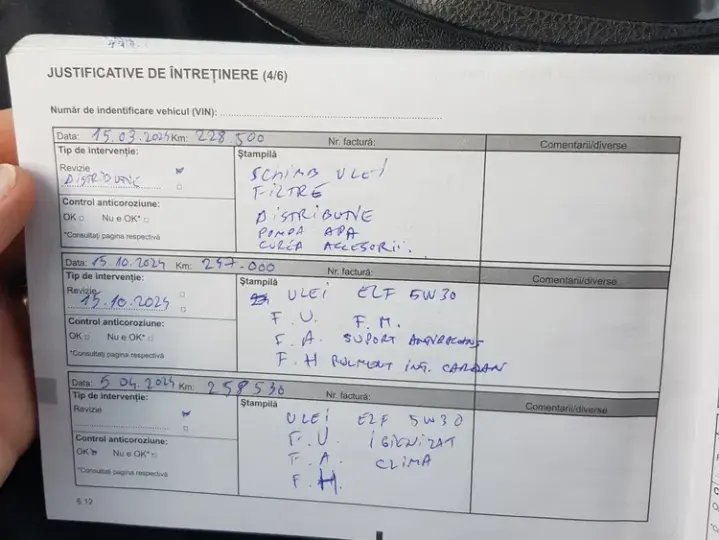 JUSTIFICATIVE DE ÎNTREȚINERE (4/6)
Număr de indentificare vehicul (VIN):
Data: 15.03.2024 Km: 228.500 Nr. factură: Comentarii/diverse
Tip de intervenție: Ștampilă
Revizie
DISTRIBUTIE
SCHIMB ULEI
FILTRE
DISTRIBUTIE
POMPA APA
CUREA ACCESORII.
Control anticoroziune:
OK Nu e OK*
*Consultați pagina respectivă
Data: 15.10.2024 Km: 247.000 Nr. factură: Comentarii/diverse
Tip de intervenție: Ștampilă
Revizie
15.10.2024
ULEI ELF 5W30
F.U. F.M.
F.A. SUPORT
F.H RULMENT INT. CARDAN
Control anticoroziune:
OK Nu e OK*
*Consultați pagina respectivă
Data: 5 04.2024 Km: 258530 Nr. factură: Comentarii/diverse
Tip de intervenție: Ștampilă
Revizie
ULEI ELF 5W30
F.U. IGIENIZAT
F.A. CLIMA
F.H.
Control anticoroziune:
OK Nu e OK*
*Consultați pagina respectivă
6.12